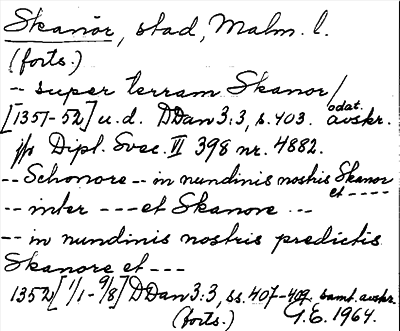 Skanör, stad, Malm. l.
(forts.)
-- super terram Skanor/
[1351-52] u.d. DDan 3:3, s. 403. odat. avskr.
jfr Dipl. Svec. VI 398 nr. 4882.
-- Schonore -- in nundinis nostris Skanor et ----
-- inter --- et Skanore ---
-- in nundinis nostris predictis
Skanore et ---
1352 [1/1-9/8] DDan 3:3, ss. 407-409. samt. avskr.
(forts.) G.E. 1964.